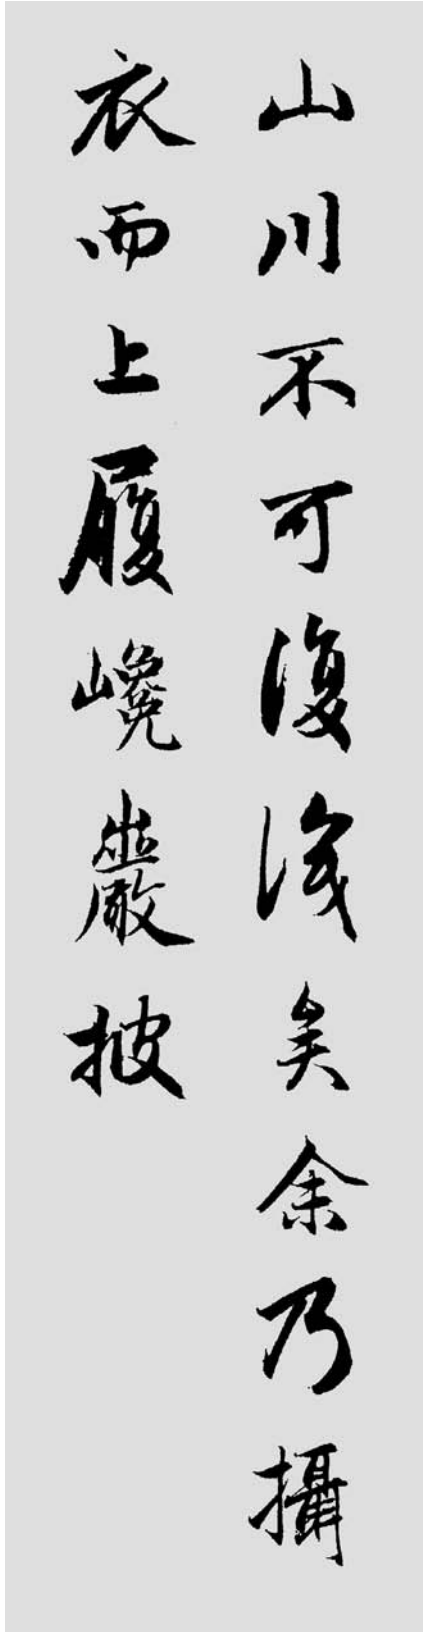 山川不可復識矣余乃攝
衣而上履巉巖披